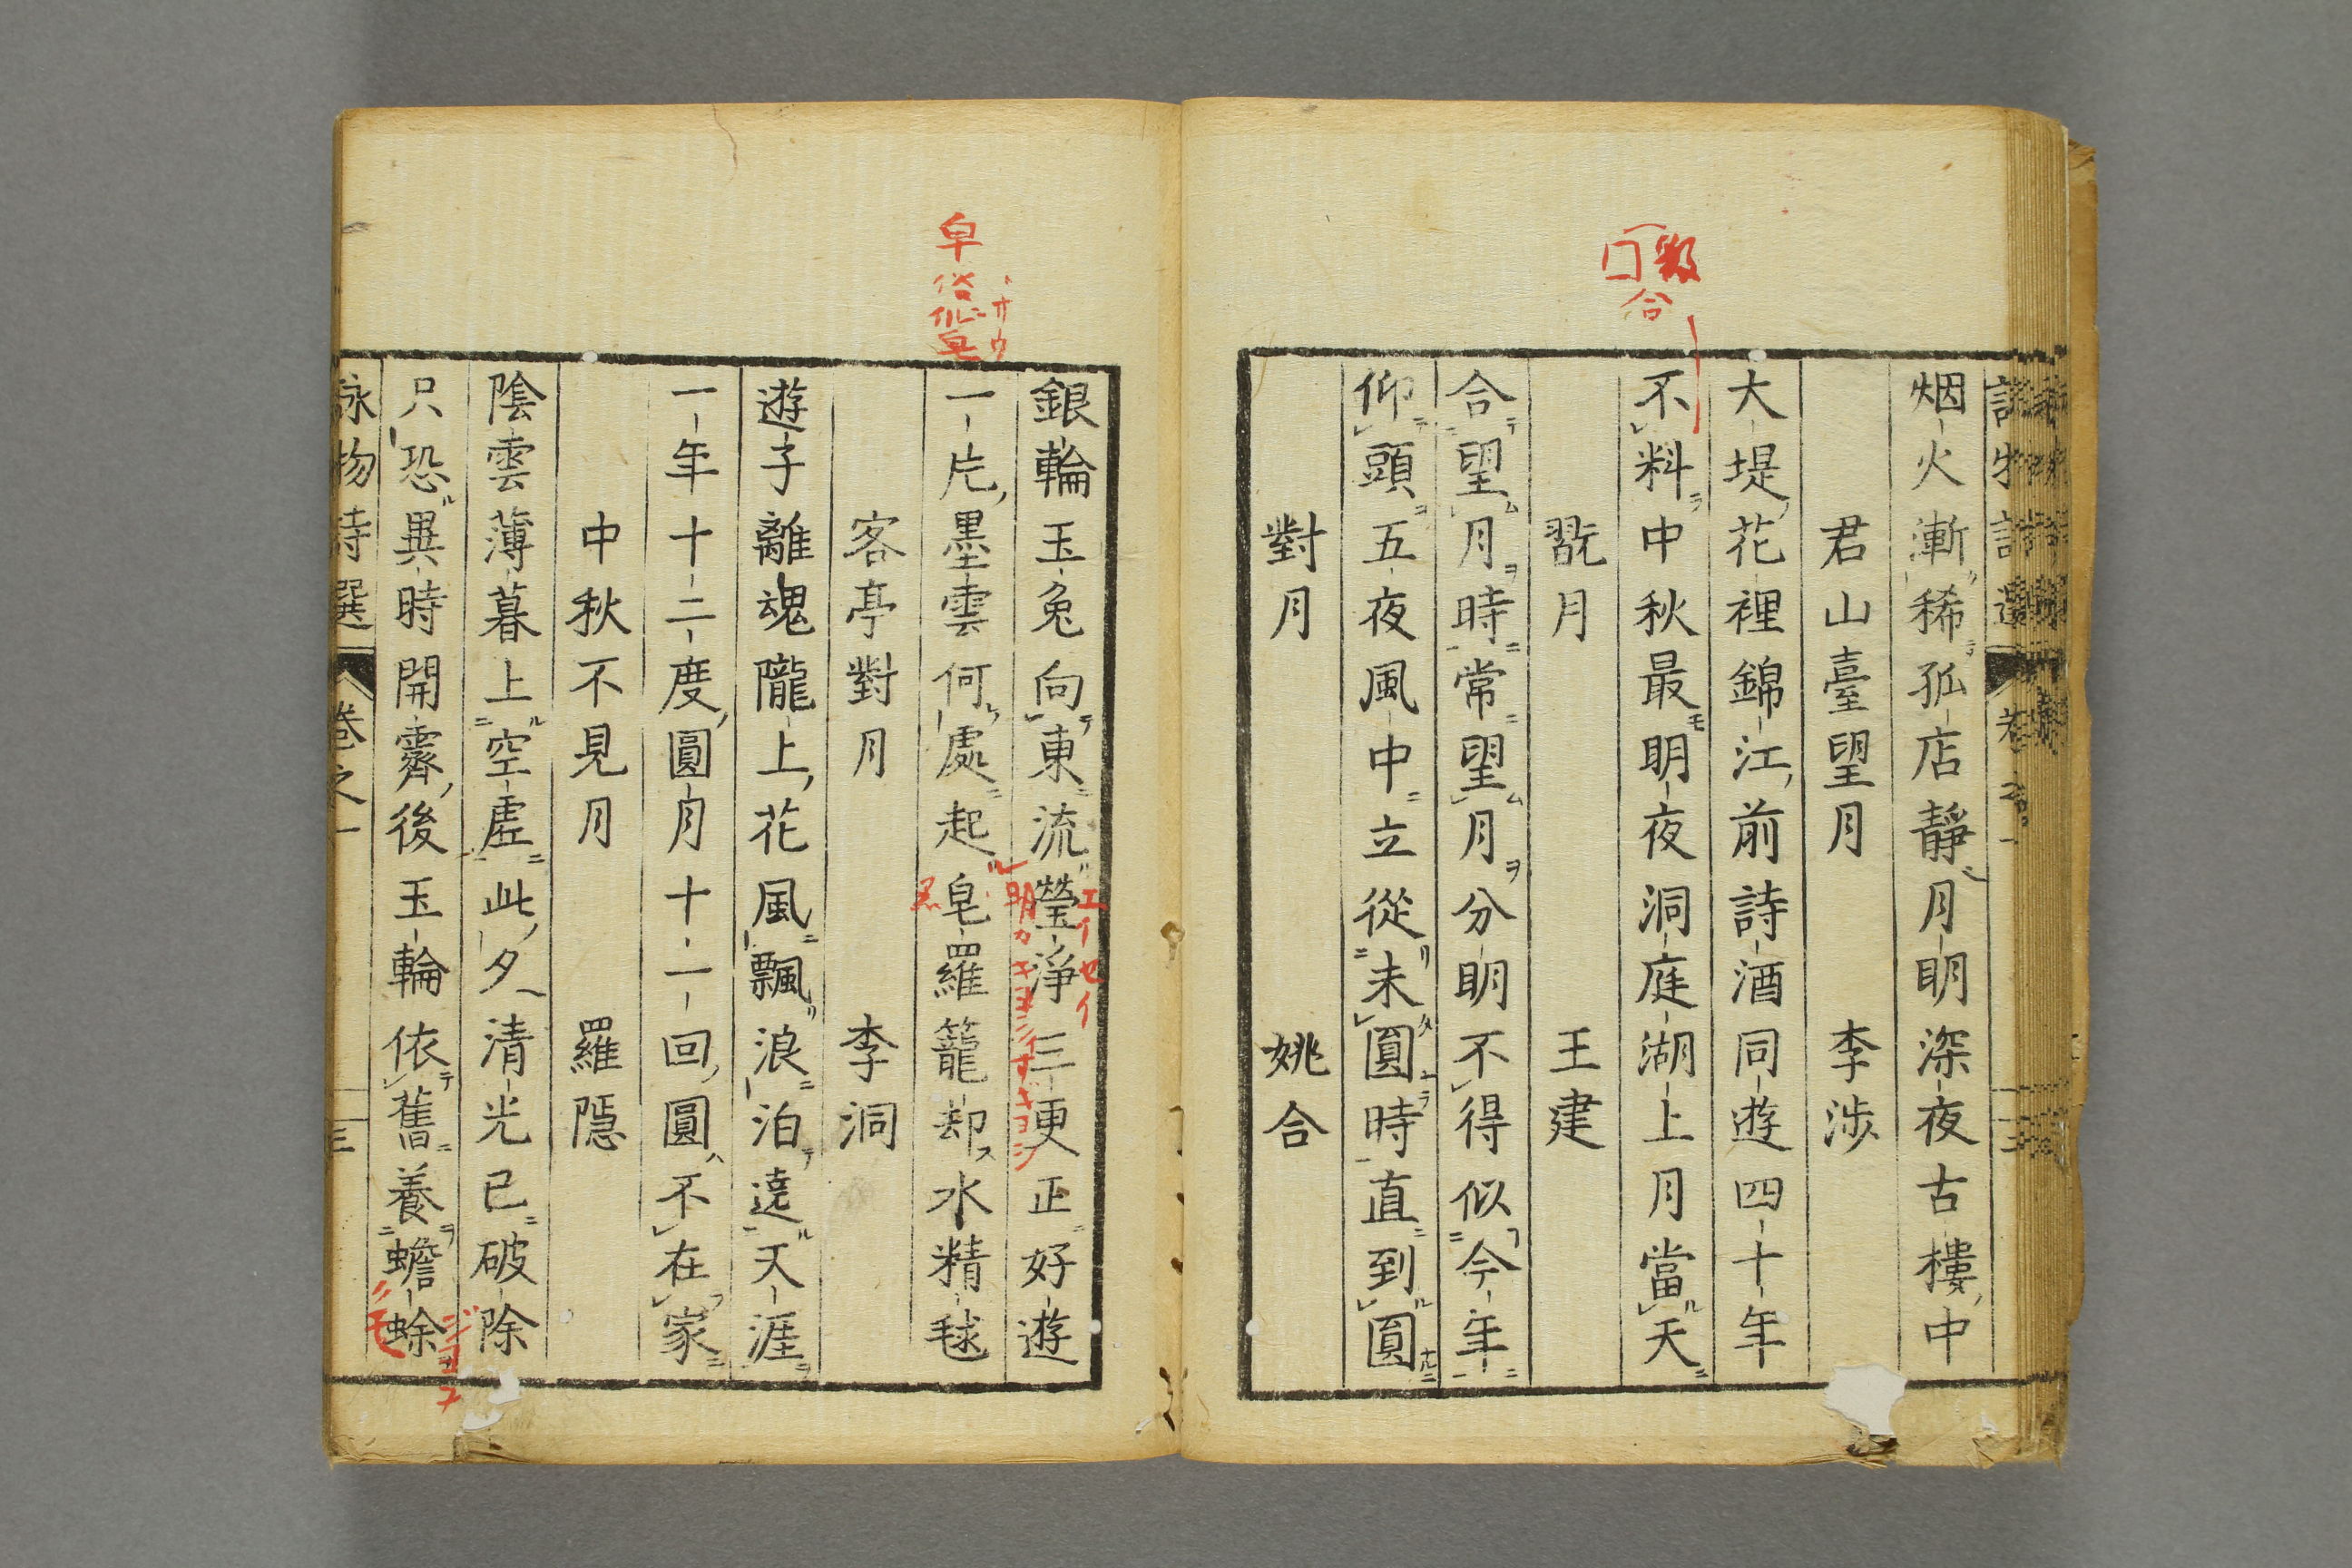 烟火漸稀孤店靜月明深夜古樓中
君山臺望月 李渉
大堤花裡錦江前詩酒同遊四十年
不料中秋最明夜洞庭湖上月當天
翫月 王建
合望月時常望月分明不得似今年
仰頭五夜風中立從未圓時直到圓
對月 姚合
銀輪玉兔向東流瑩淨三更正好遊
一片墨雲何處起皂羅籠却水精毬
客亭對月 李洞
遊子離魂隴上花風飄浪泊遶天涯
一年十二度圓月十一回圓不在家
中秋不見月 羅隱
陰雲薄暮上空虛此夕清光已破除
只恐異時開霽後玉輪依舊養蟾蜍
詠物詩選 卷之一 三